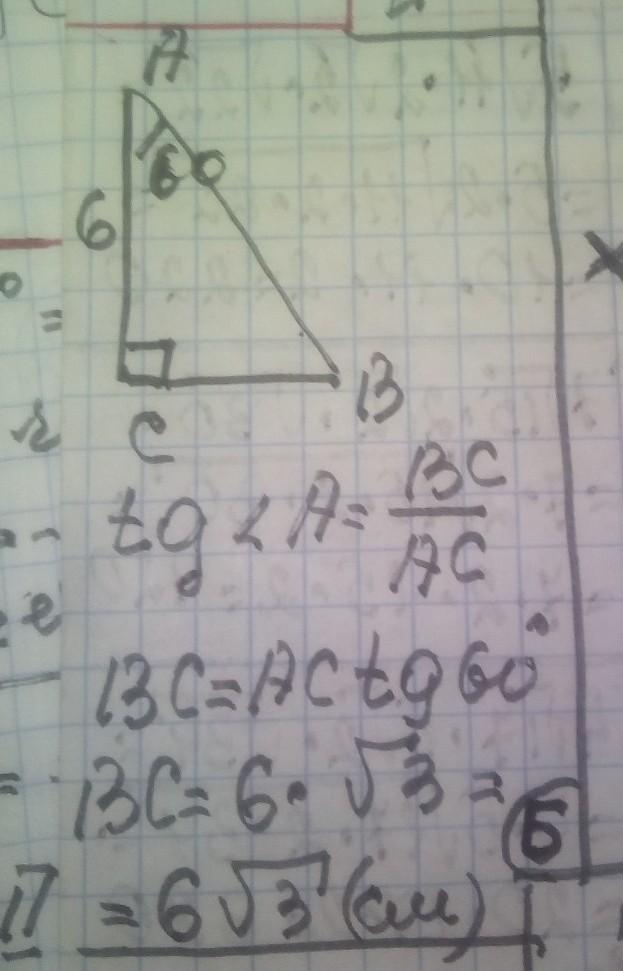 A
60
6
C
B
tg ∠A = BC/AC
BC = AC tg 60°
BC = 6 · √3 =
= 6√3 (см)
5